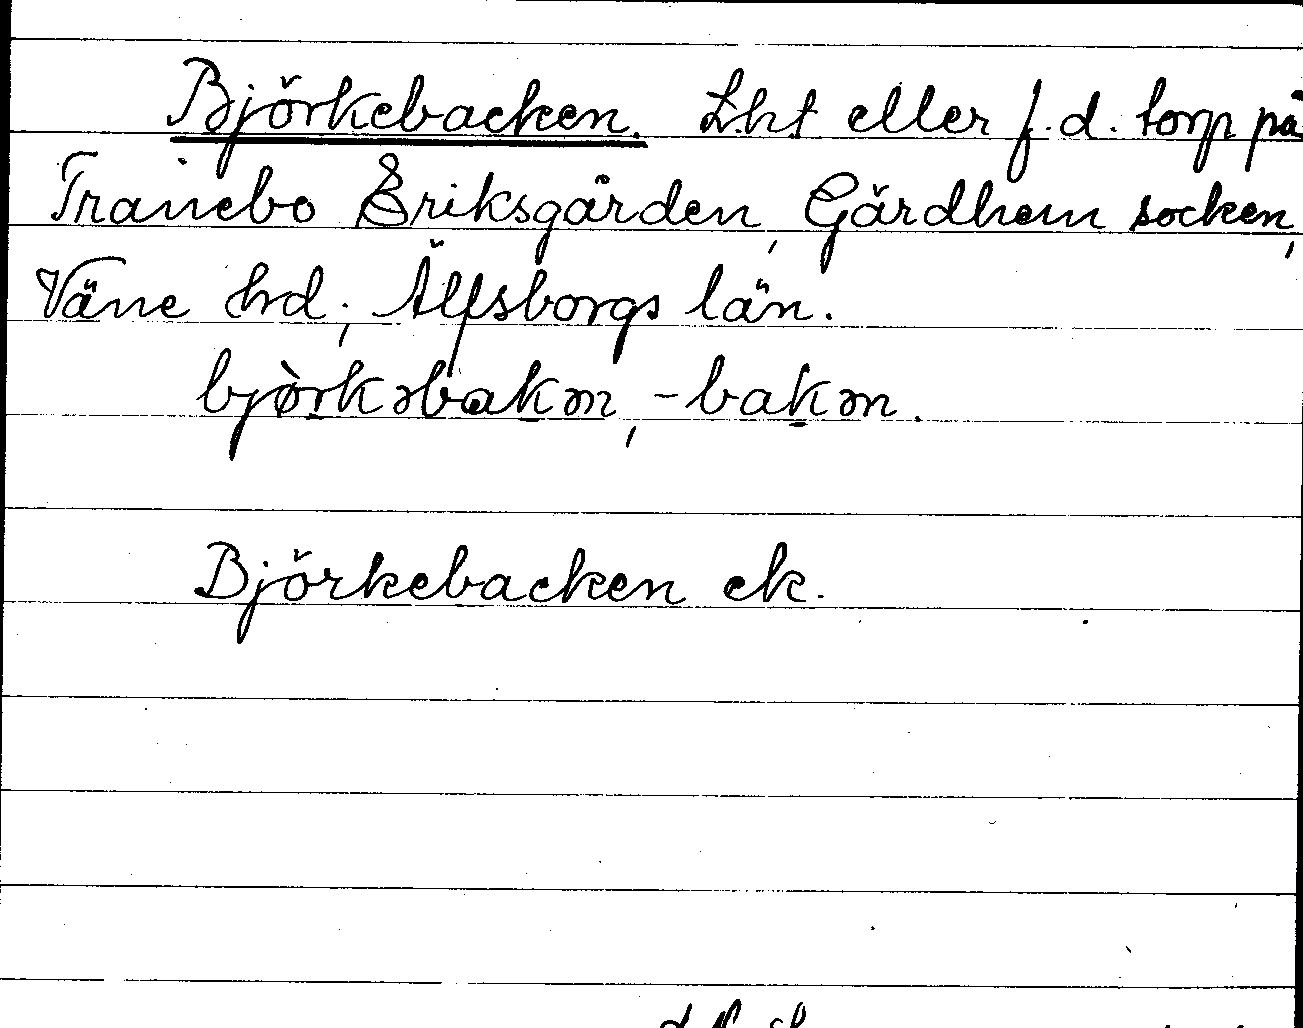 Björkebacken. Lht eller f.d. torp på
Tranebo Eriksgården, Gärdhem socken,
Väne hd, Älfsborgs län.
bjòrkəbakən, -bakən.
Björkebacken ek.